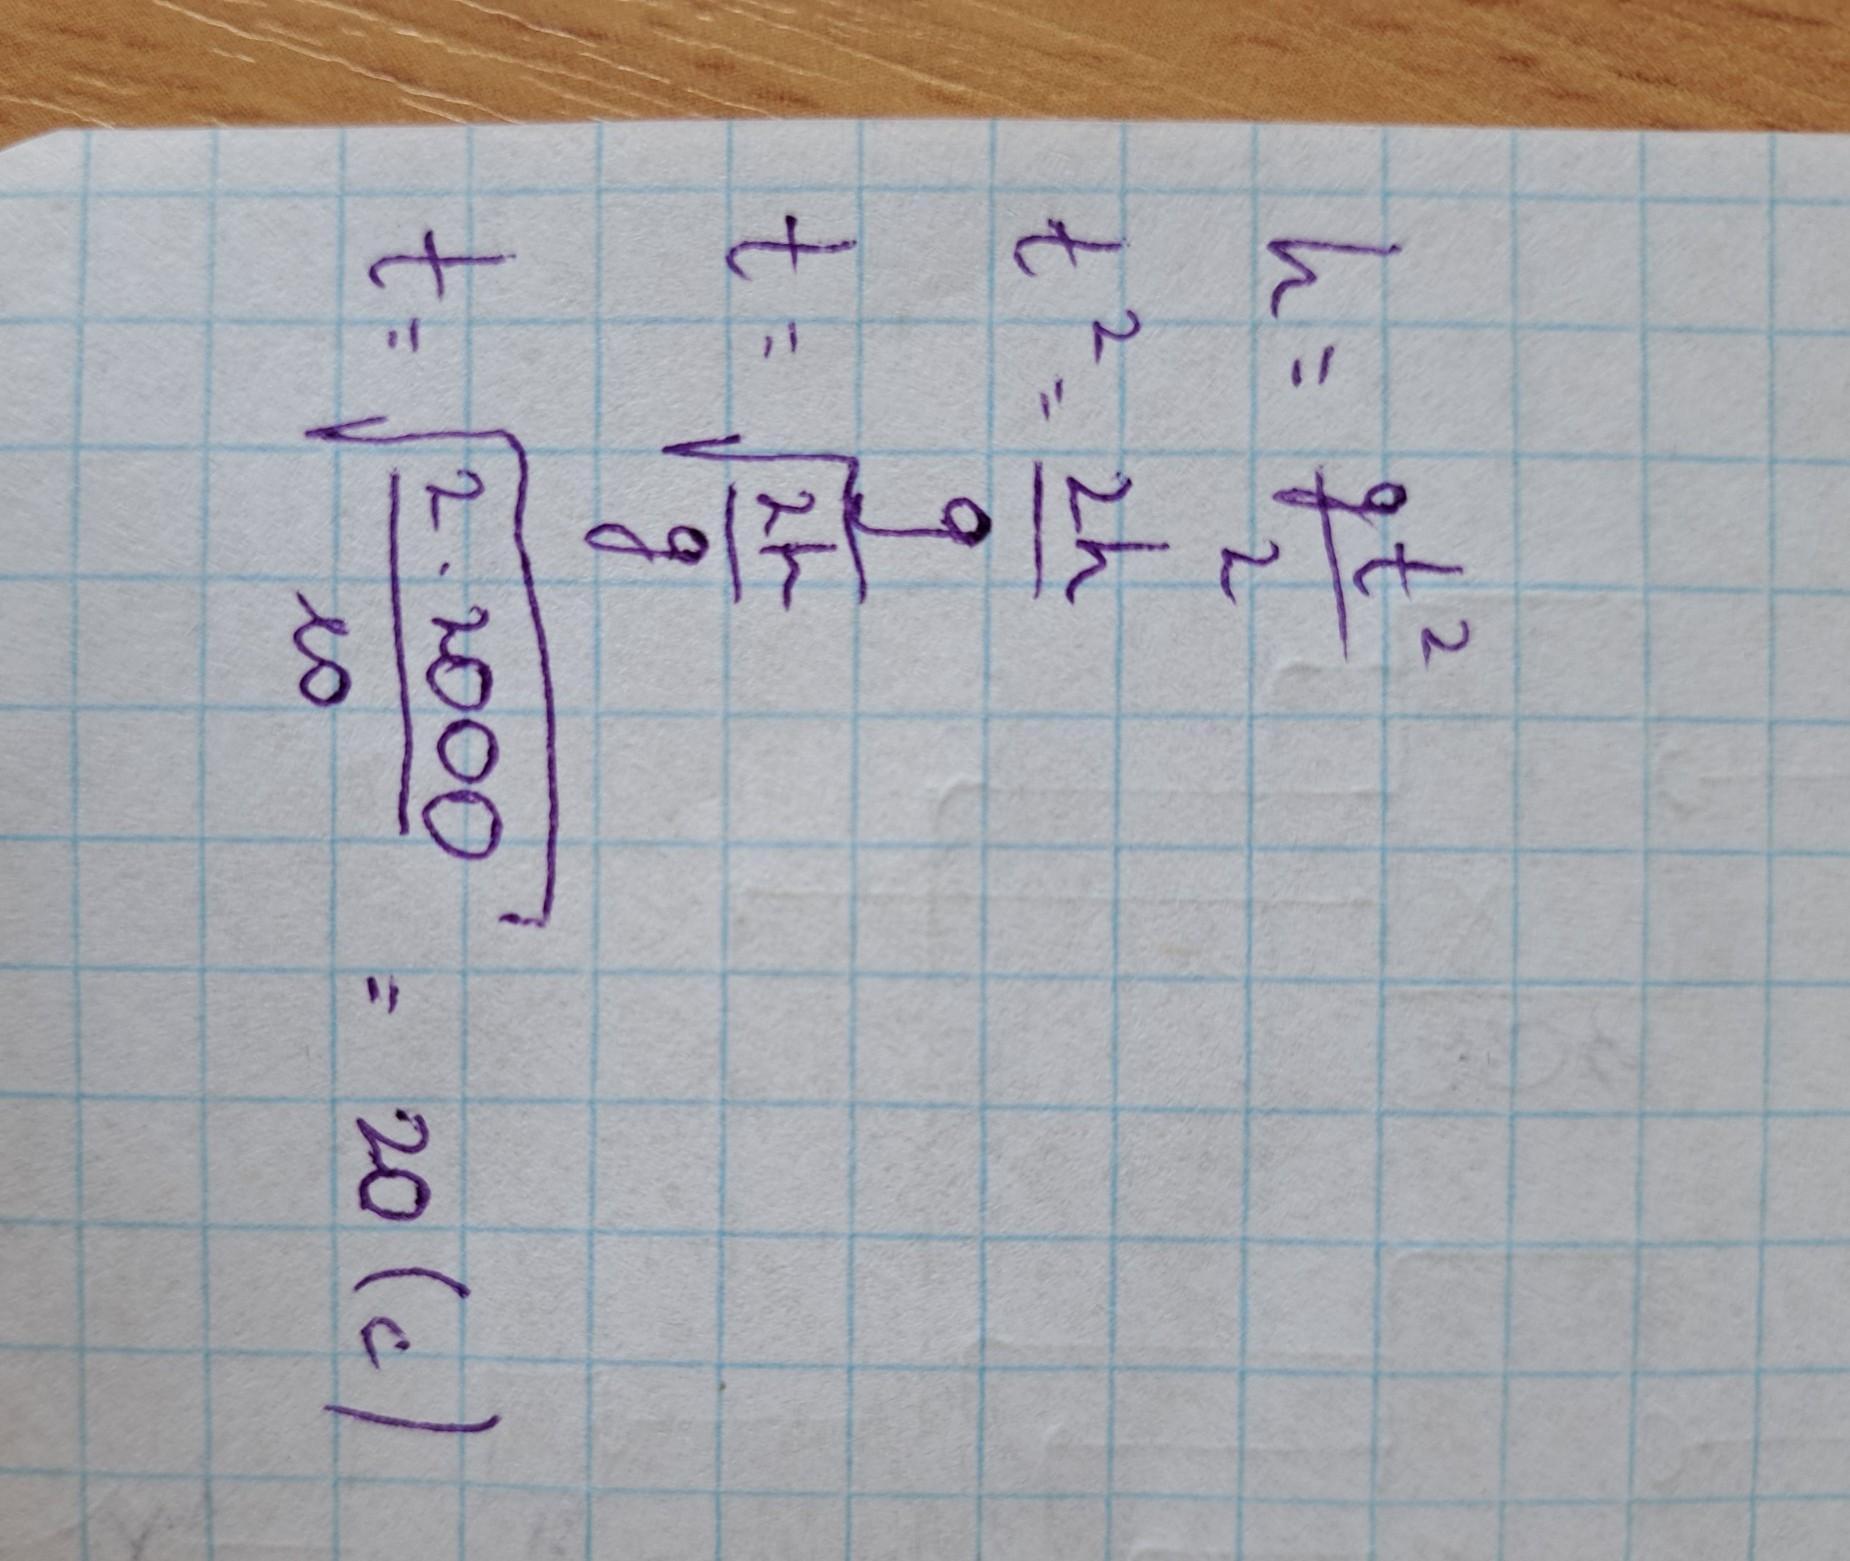 h = gt²/2
t² = 2h/g
t = √(2h/g)
t = √(2·2000/10) = 20 (с)